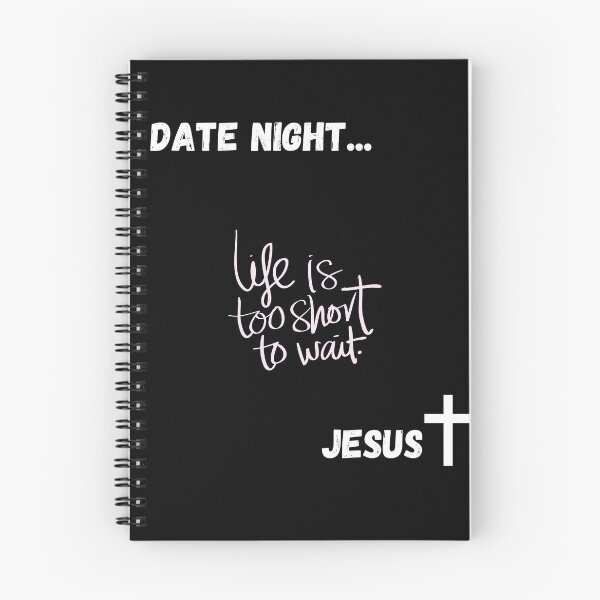 DATE NIGHT...
life is
too short
to wait.
JESUS